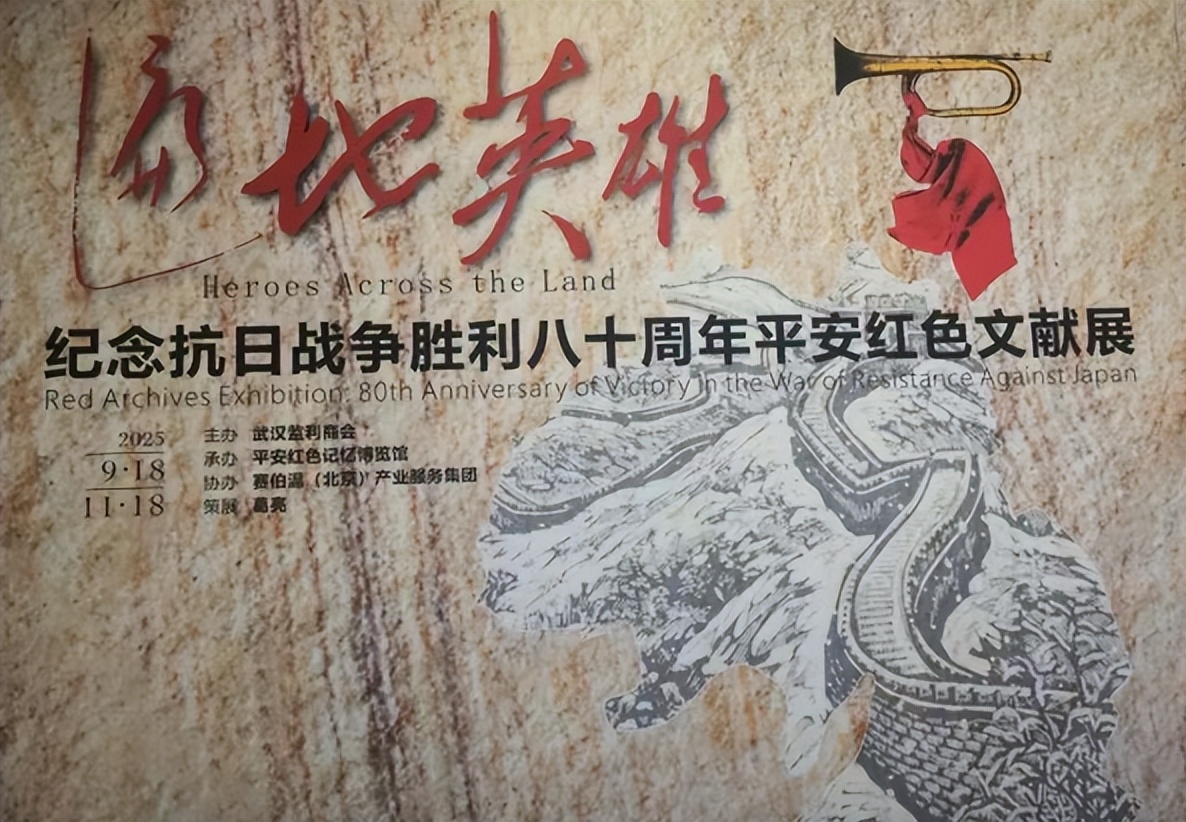 遍地英雄
Heroes Across the Land
纪念抗日战争胜利八十周年平安红色文献展
Red Archives Exhibition: 80th Anniversary of Victory in the War of Resistance Against Japan
2025
9·18
11·18
主办 武汉监利商会
承办 平安红色记忆博览馆
协办 赛伯温（北京）产业服务集团
策展 葛亮